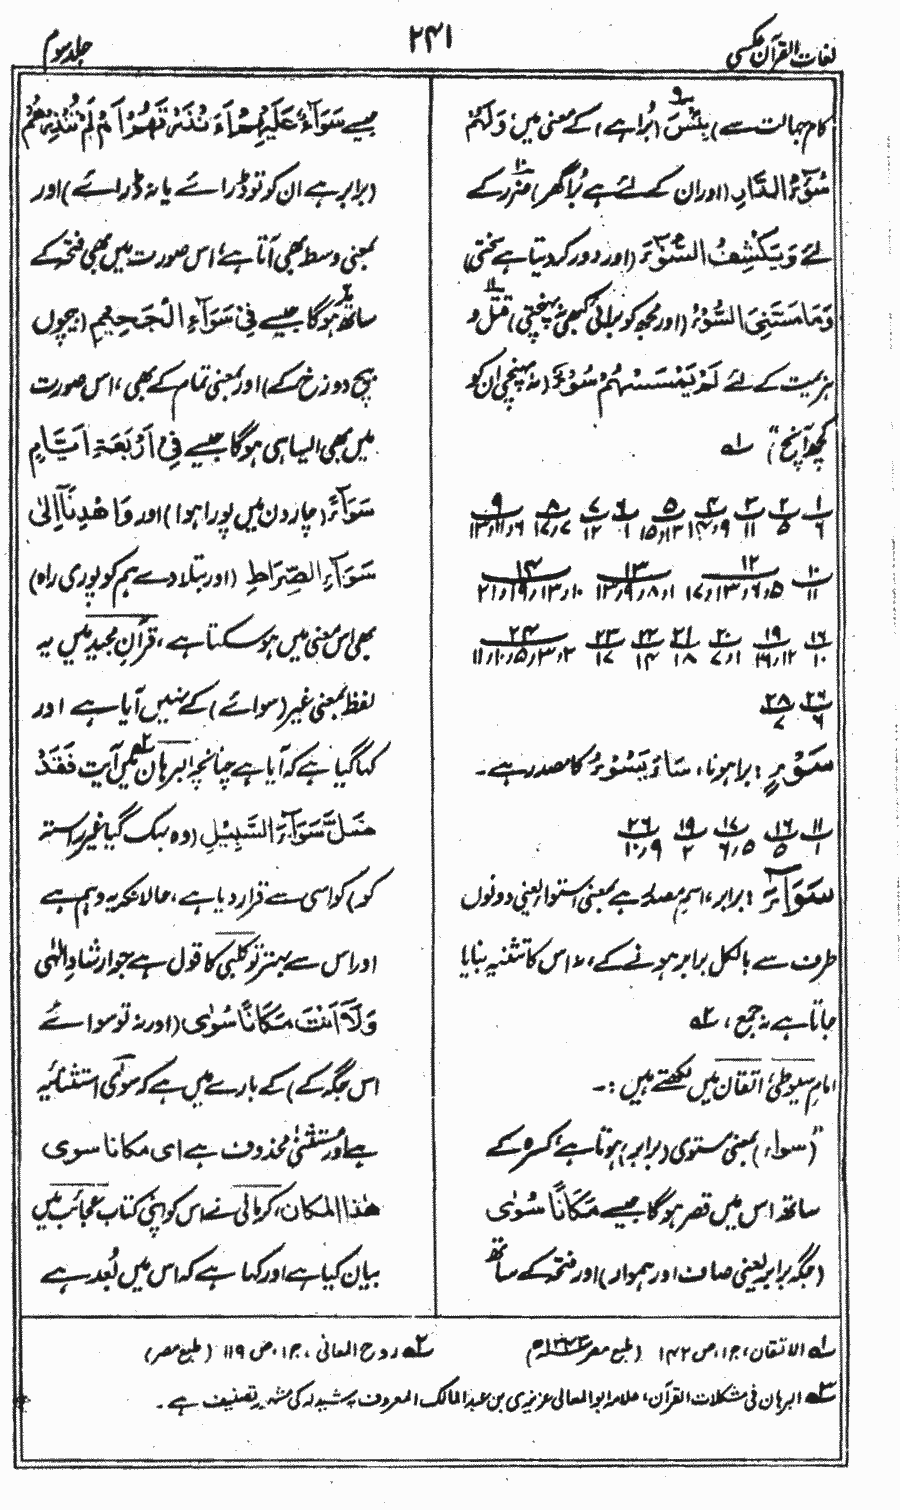 لغات القرآن عکسی
۲۴۱
جلد سوم
کام بجالت سے) بِئْسَ (بُرا ہے) کے معنی میں وَلَهُمْ
سُوْٓءُ الدَّارِ (اور ان کے لئے ہے بُرا گھر) ضرر کے
لئے وَيَكْشِفُ السُّوْٓءَ (اور دور کر دیتا ہے سختی)
وَمَا مَسَّنِیَ السُّوْٓءُ (اور مجھ کو برائی کبھی نہ پہنچتی) قتل و
ہزیمت کے لئے لَمْ يَمْسَسْهُمْ سُوْٓءٌ (نہ پہنچی ان کو
کچھ آنچ) "
سَوْءٍ : برا ہونا، سَاءَ يَسُوْءُ کا مصدر ہے۔
سَوَآءٌ : برابر، اسمِ مصدر ہے بمعنی استواء یعنی دونوں
طرف سے بالکل برابر ہونے کے، نہ اس کا تثنیہ بنایا
جاتا ہے نہ جمع،
امام سیوطیؒ اتقان میں لکھتے ہیں :۔
"(سواء) بمعنی مستوی (برابر) ہوتا ہے کسرہ کے
ساتھ اس میں قصر ہوگا جیسے مَكَانًا سُوًى
(جگہ برابر یعنی صاف اور ہموار) اور فتحہ کے ساتھ
جیسے سَوَآءٌ عَلَيْهِمْ ءَاَنْذَرْتَهُمْ اَمْ لَمْ تُنْذِرْهُمْ
(برابر ہے ان کو تو ڈرائے یا نہ ڈرائے) اور
بمعنی وسط بھی آتا ہے، اس صورت میں بھی فتحہ کے
ساتھ ہوگا جیسے فِيْ سَوَآءِ الْجَحِيْمِ (بیچوں
بیچ دوزخ کے) اور بمعنی تمام کے بھی، اس صورت
میں بھی ایسا ہی ہوگا جیسے فِيْٓ اَرْبَعَةِ اَيَّامٍ
سَوَآءً (چار دن میں پورا ہوا) اور وَاهْدِنَآ اِلٰى
سَوَآءِ الصِّرَاطِ (اور بتلا دے ہم کو پوری راہ)
بھی اس معنی میں ہو سکتا ہے، قرآن مجید میں یہ
لفظ بمعنی غیر (سوائے) کے نہیں آیا ہے اور
کہا گیا ہے کہ آیا ہے چنانچہ البرہان میں آیت فَقَدْ
ضَلَّ سَوَآءَ السَّبِيْلِ (وہ بہک گیا غیر راستہ
کو) کو اسی سے قرار دیا ہے، حالانکہ یہ وہم ہے
اور اس سے بہتر تو کلبی کا قول ہے جو ارشادِ الٰہی
وَلَآ اَنْتَ مَكَانًا سُوًى (اور نہ تو سوائے
اس جگہ کے) کے بارے میں ہے کہ سوٰی استثنائیہ
ہے اور مستثنیٰ محذوف ہے ای مکانا سوی
ھٰذا المکان، کرمانی نے اس کو اپنی کتاب عجائب میں
بیان کیا ہے اور کہا ہے کہ اس میں بُعد ہے
۱ الاتقان، ج۱، ص ۱۴۲ (طبع مصر ۱۳۴۳ھ)
۲ روح المعانی، ج۱، ص ۱۱۹ (طبع مصر)
۳ البرہان فی مشکلات القرآن، علامہ ابو المعالی عزیزی بن عبد الملک المعروف بہ شیذلہ کی مشہور تصنیف ہے۔